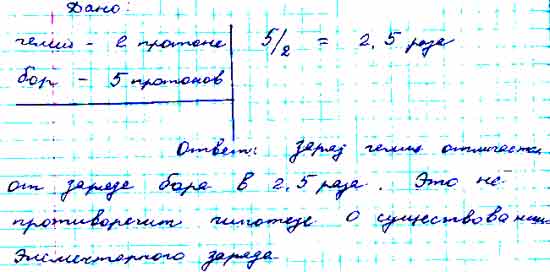 Дано:
гелий - 2 протона
5/2 = 2,5 раза
бор - 5 протонов
Ответ: заряд гелия отличается
от заряда бора в 2,5 раза. Это не
противоречит гипотезе о существовании
элементарного заряда